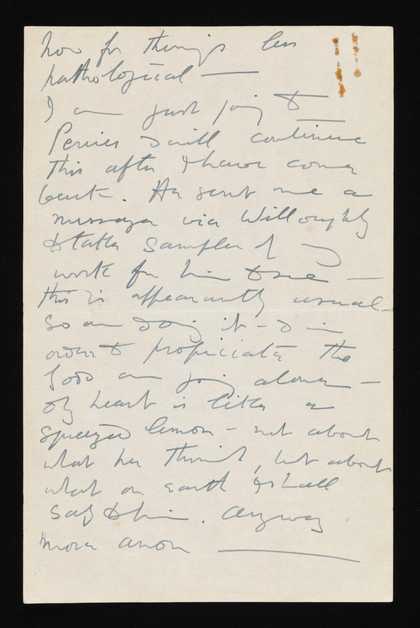 now for things less
pathological —
I am just going to
Perrier & will continue
this after I have come
back. He sent me a
message via Willoughby
to take samples of my
work for him to see —
this is apparently usual —
so am doing it – & in
order to propitiate the
Gods am going alone —
My heart is like a
squeezed lemon – not about
what he thinks, but about
what on earth I shall
say to him. Anyway
more anon —